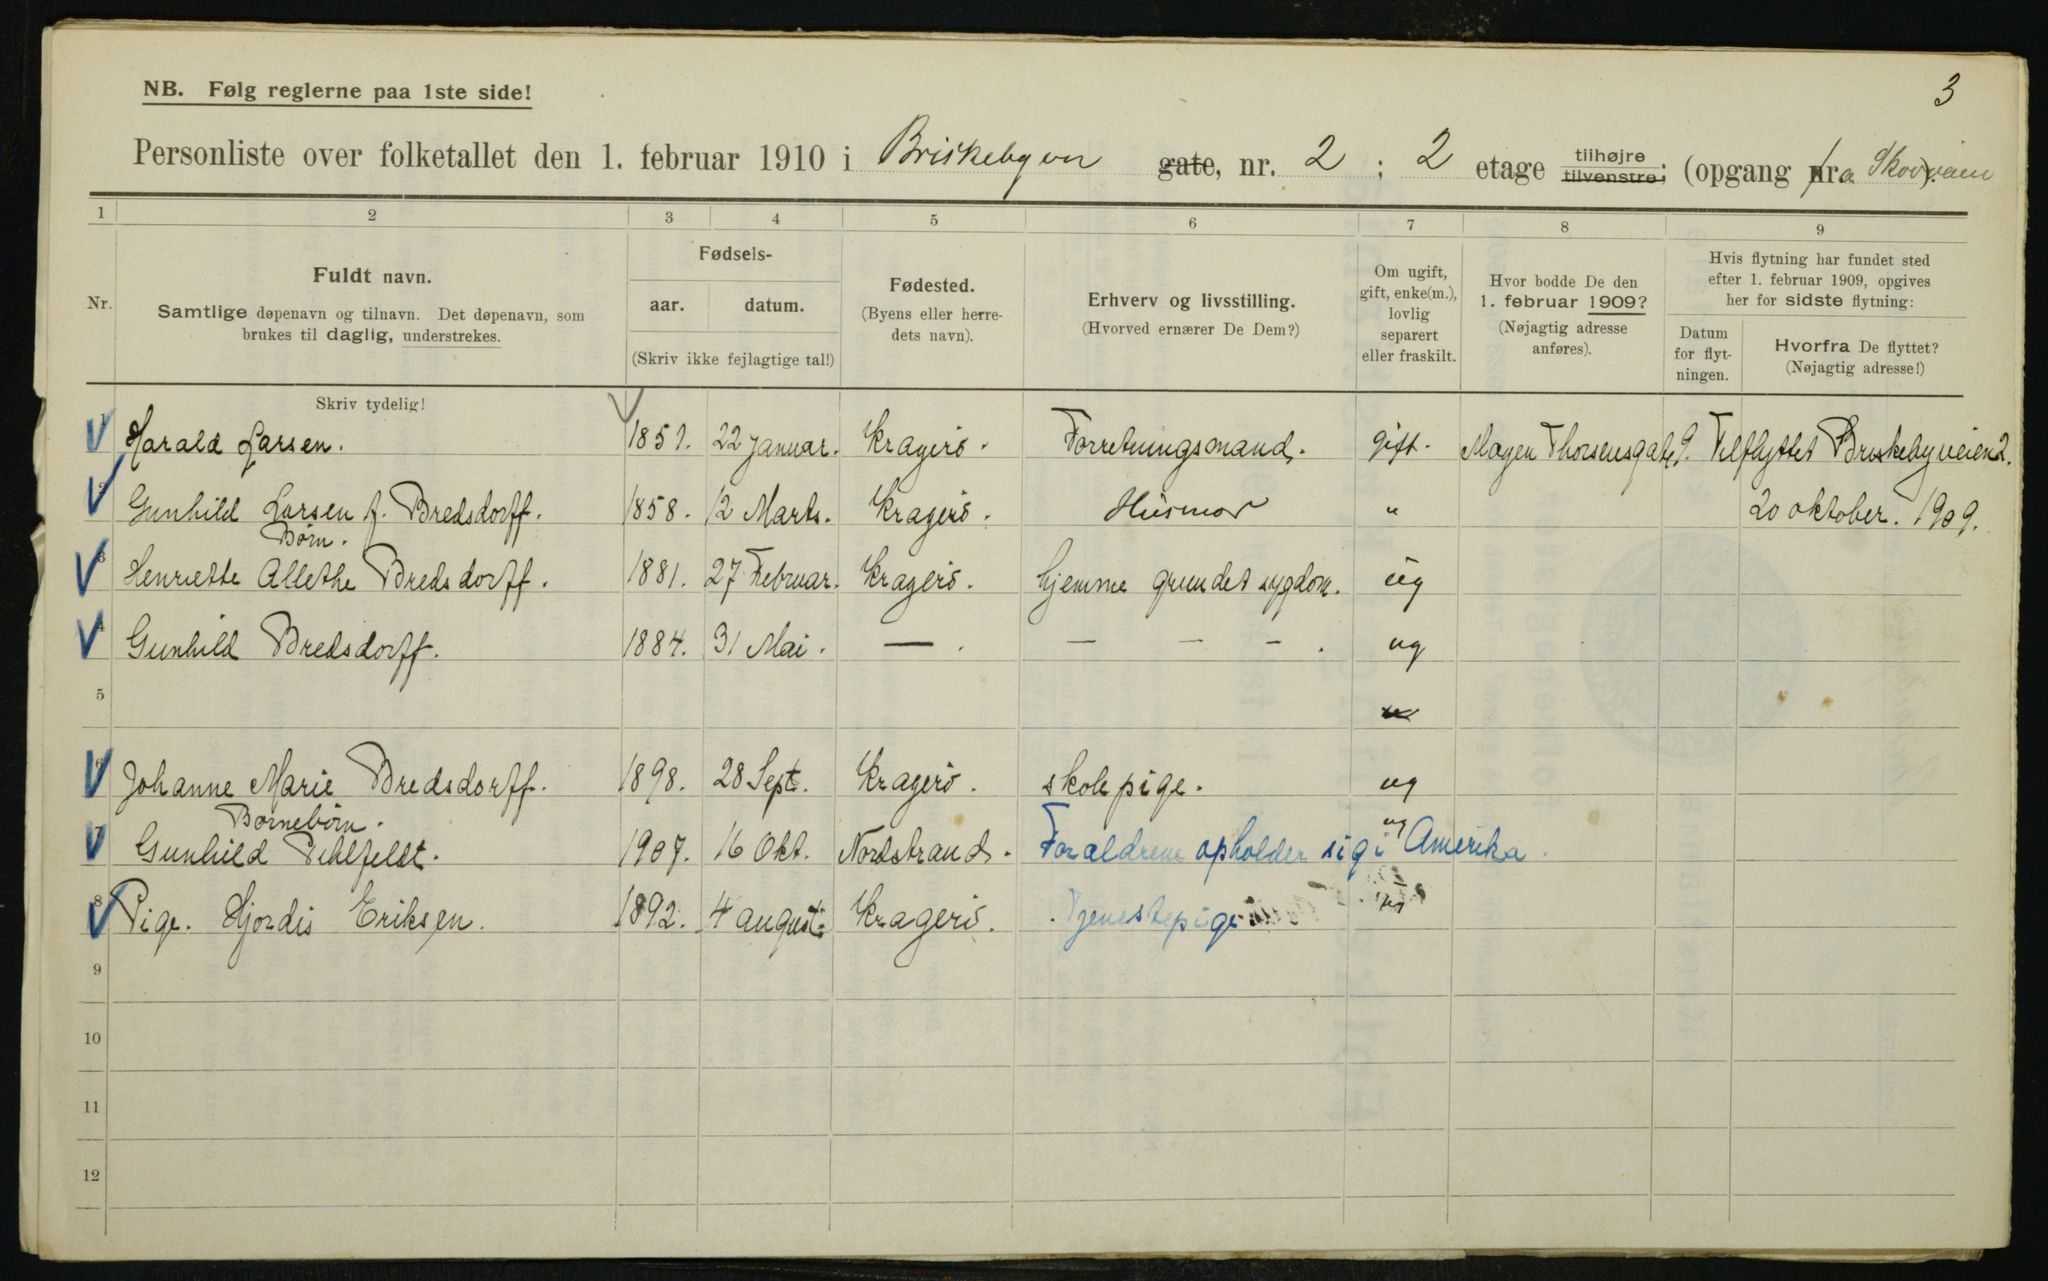 3
NB. Følg reglerne paa 1ste side!
Personliste over folketallet den 1. februar 1910 i Briskebyvn gate, nr. 2 ; 2 etage tilhøjre tilvenstre; (opgang fra Skovveien
1 2 3 4 5 6 7 8 9
Nr.
Fuldt navn.
Samtlige døpenavn og tilnavn. Det døpenavn, som
brukes til daglig, understrekes.
Fødsels-
aar. datum.
(Skriv ikke fejlagtige tal!)
Fødested.
(Byens eller herre-
dets navn).
Erhverv og livsstilling.
(Hvorved ernærer De Dem?)
Om ugift,
gift, enke(m.),
lovlig
separert
eller fraskilt.
Hvor bodde De den
1. februar 1909?
(Nøjagtig adresse
anføres).
Hvis flytning har fundet sted
efter 1. februar 1909, opgives
her for sidste flytning:
Datum
for flyt-
ningen.
Hvorfra De flyttet?
(Nøjagtig adresse!)
Skriv tydelig!
1 Harald Larsen. 1851. 22 Januar. Kragerö. Forretningsmand. gift. Mogen Thorsensgate 9. Tilflyttet Briskebyveien 2.
2 Gunhild Larsen f. Bredsdorff. 1858. 12 Marts. Kragerö. Husmor " 20 oktober. 1909.
Börn.
3 Henriette Allethe Bredsdorff. 1881. 27 Februar. Kragerö. hjemme grundet sygdom. ug
4 Gunhild Bredsdorff. 1884. 31 Mai. — . — — — . ug
5
6 Johanne Marie Bredsdorff. 1898. 28 Sept. Kragerö. skolepige. ug
Börnebörn.
7 Gunhild Pihlfeldt. 1907. 16 Okt. Nordstrand. Forældrene opholder sig i Amerika. ug
8 Pige. Hjordis Eriksen. 1892. 4 august. Kragerö. Tjenestepige ug
9
10
11
12